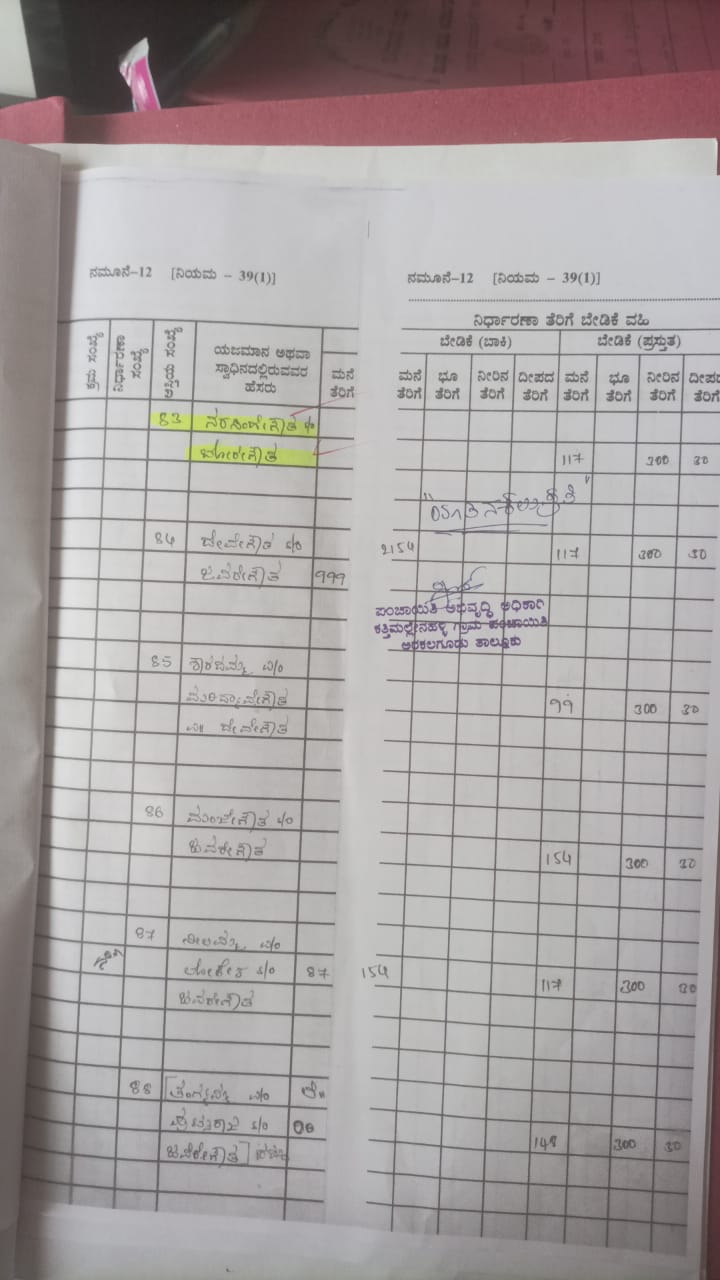 ನಮೂನೆ-12 [ನಿಯಮ - 39(1)]
ನಮೂನೆ-12 [ನಿಯಮ - 39(1)]
ನಿರ್ಧಾರಣಾ ತೆರಿಗೆ ಬೇಡಿಕೆ ವಹಿ
ಬೇಡಿಕೆ (ಬಾಕಿ) ಬೇಡಿಕೆ (ಪ್ರಸ್ತುತ)
ಕ್ರಮ ಸಂಖ್ಯೆ
ನಿರ್ಧಾರಣಾ ಸಂಖ್ಯೆ
ಆಸ್ತಿಯ ಸಂಖ್ಯೆ
ಯಜಮಾನ ಅಥವಾ
ಸ್ವಾಧಿನದಲ್ಲಿರುವವರ
ಹೆಸರು
ಮನೆ
ತೆರಿಗೆ
ಮನೆ ಭೂ ನೀರಿನ ದೀಪದ ಮನೆ ಭೂ ನೀರಿನ ದೀಪದ
ತೆರಿಗೆ ತೆರಿಗೆ ತೆರಿಗೆ ತೆರಿಗೆ ತೆರಿಗೆ ತೆರಿಗೆ ತೆರಿಗೆ ತೆರಿಗೆ
83 ನರಸಿಂಹೇಗೌಡ s/o
ಬೋರೇಗೌಡ 117 300 30
84 ದೇವೇಗೌಡ s/o 2154 117 300 30
ಜವರೇಗೌಡ 999
ಪಂಚಾಯಿತಿ ಅಭಿವೃದ್ಧಿ ಅಧಿಕಾರಿ
ಕತ್ತಿಮಲ್ಲೇನಹಳ್ಳಿ ಗ್ರಾಮ ಪಂಚಾಯಿತಿ
ಅರಕಲಗೂಡು ತಾಲ್ಲೂಕು
85 ಶಾರದಮ್ಮ w/o
99 300 30
ದೇವೇಗೌಡ
86 ಮಂಜೇಗೌಡ s/o
ಜವರೇಗೌಡ 154 300 30
87 ನೀಲಮ್ಮ w/o
ಲೋಕೇಶ s/o 87 154 117 300 30
ಜವರೇಗೌಡ
88 w/o
s/o
ಜವರೇಗೌಡ 148 300 30